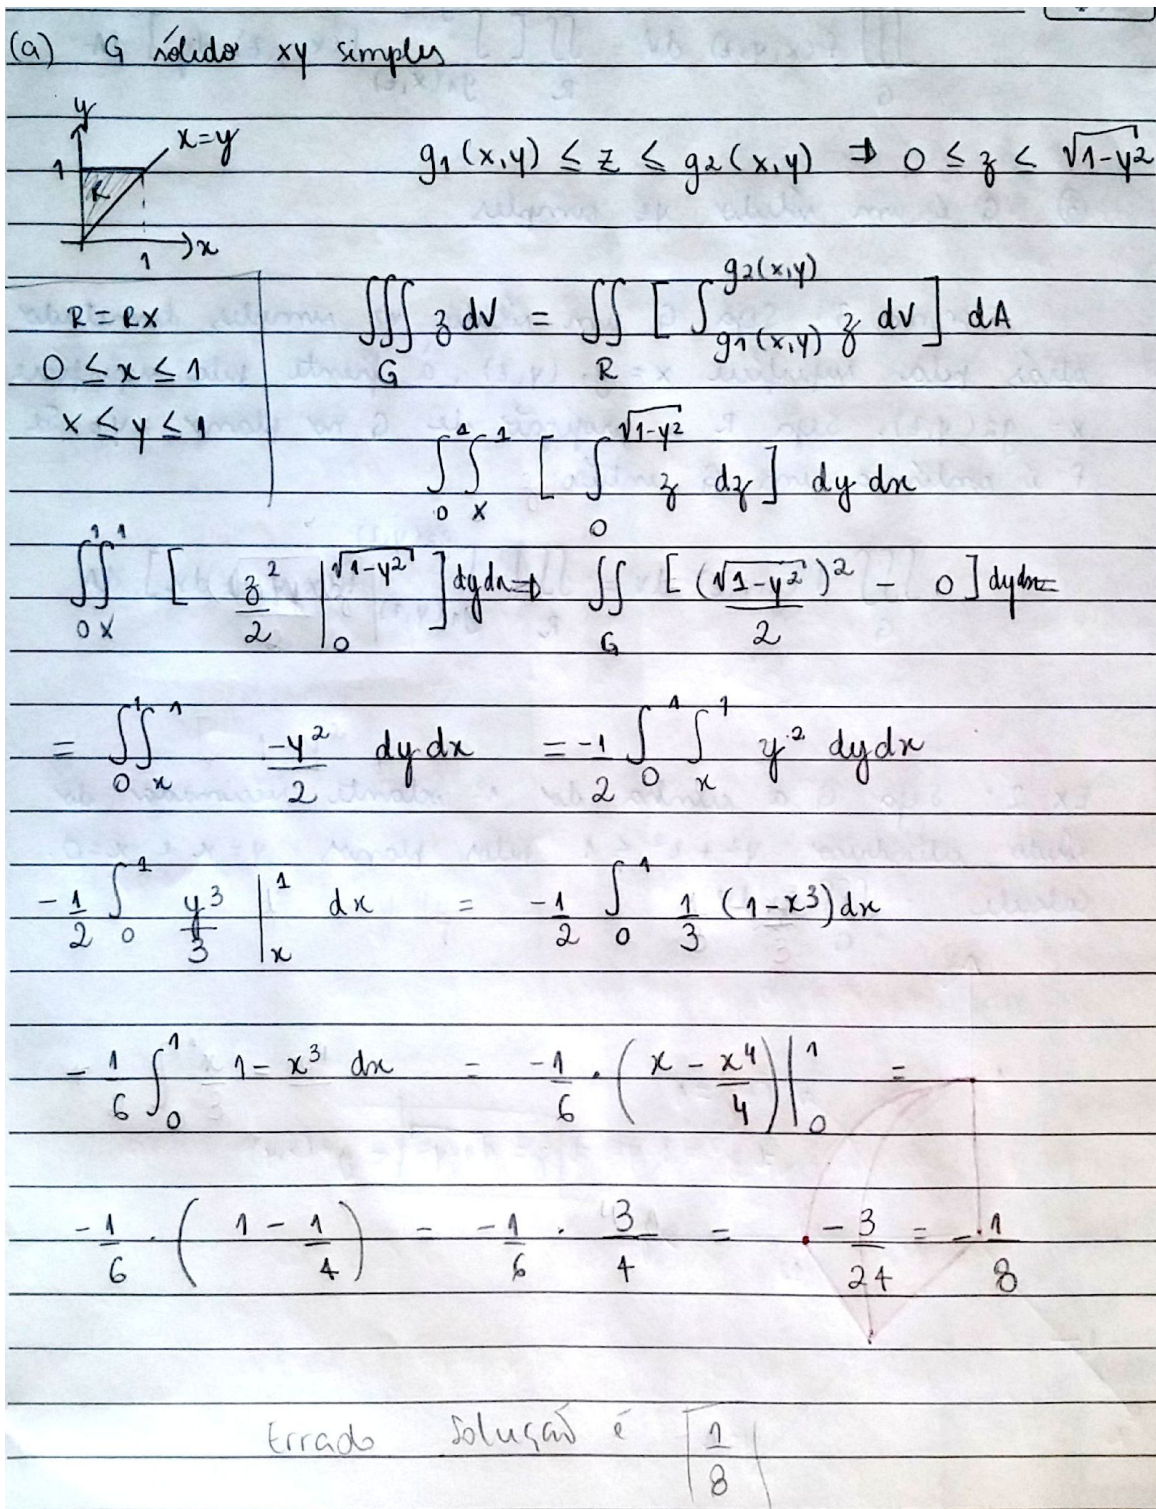 (a) G sólido xy simples
y
x=y
1
R
1
x
g1(x,y) ≤ z ≤ g2(x,y) ⇒ 0 ≤ z ≤ √1-y²
R = Rx
0 ≤ x ≤ 1
x ≤ y ≤ 1
∭_G z dV = ∬_R [ ∫_{g1(x,y)}^{g2(x,y)} z dV ] dA
∫_0^1 ∫_x^1 [ ∫_0^{√1-y²} z dz ] dy dx
∫_0^1 ∫_x^1 [ z²/2 |_0^{√1-y²} ] dy dx ⇒ ∬_G [ (√1-y²)²/2 - 0 ] dy dx =
= ∫_0^1 ∫_x^1 -y²/2 dy dx = -1/2 ∫_0^1 ∫_x^1 y² dy dx
-1/2 ∫_0^1 y³/3 |_x^1 dx = -1/2 ∫_0^1 1/3 (1-x³) dx
-1/6 ∫_0^1 1 - x³ dx = -1/6 · ( x - x⁴/4 ) |_0^1 =
-1/6 · ( 1 - 1/4 ) = -1/6 · 3/4 = -3/24 = -1/8
Errado Solução é 1/8